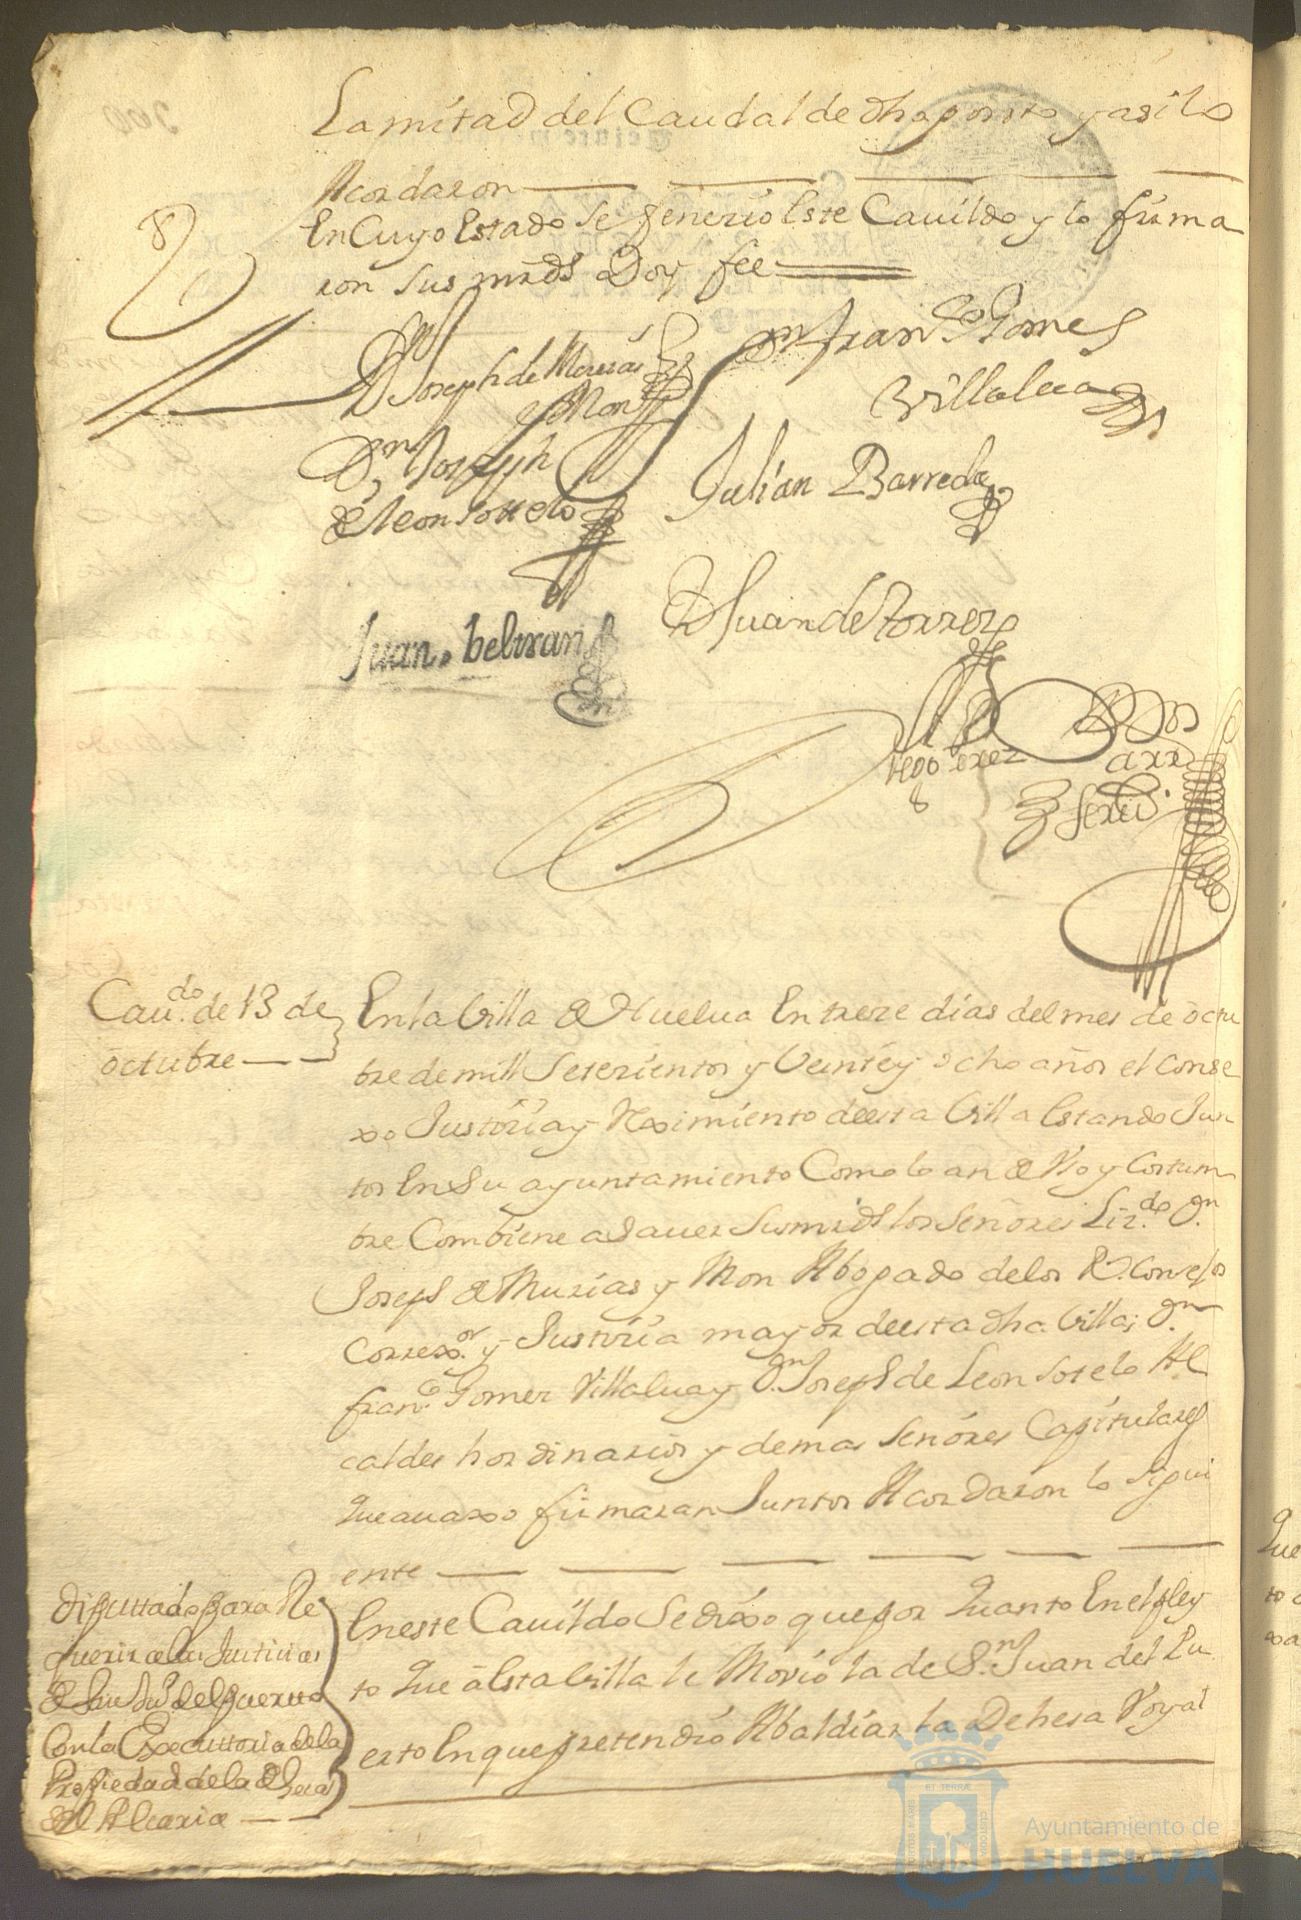 La mitad del Caudal de dho posito y asi lo
Acordaron
En Cuyo Estado se feneció Este Cauildo y lo firma
ron sus mrds Doy fee
Dn Joseph de Murias
y Mon
Dn Franco Gomes
Villalua
Dn Joseph
de Leon Sotelo
Julian Barreda
Juan de Torres
Juan beltran
Diego Perez
Escriu
Caudo de 13 de
octubre
En la Villa de Huelua En treze días del mes de octu
bre de mill Setezientos y Veinte y ocho años el Conse
xo Justizia y Reximiento deesta Villa Estando Jun
tos En Su ayuntamiento Como lo an de Vso y Costum
bre Combiene a Sauer Sus mrds los Señores Lizdo Dn
Joseph de Murias y Mon Abogado de los Rs Consejos
Correxor y Justizia mayor deesta dha Villa; Dn
Franco Gomez Villalua y Dn Joseph de Leon Sotelo Al
caldes hordinarios y demas Señores Capitulares
Que auaxo firmaran Juntos Acordaron lo Sigui
ente
Diputtado para Re
querir a las Justicias
de San Jun del puerto
Con la Executtoria de la
Propiedad de la dehesa
del Alcaria
En este Cauildo Se dixo que por Quanto En el pley
to Que a Esta Villa le Movio la de Sn Juan del Pu
erto En que pretendio Abaldiar la Dehesa Voyal
ET TERRÆ
Ayuntamiento de
HUELVA